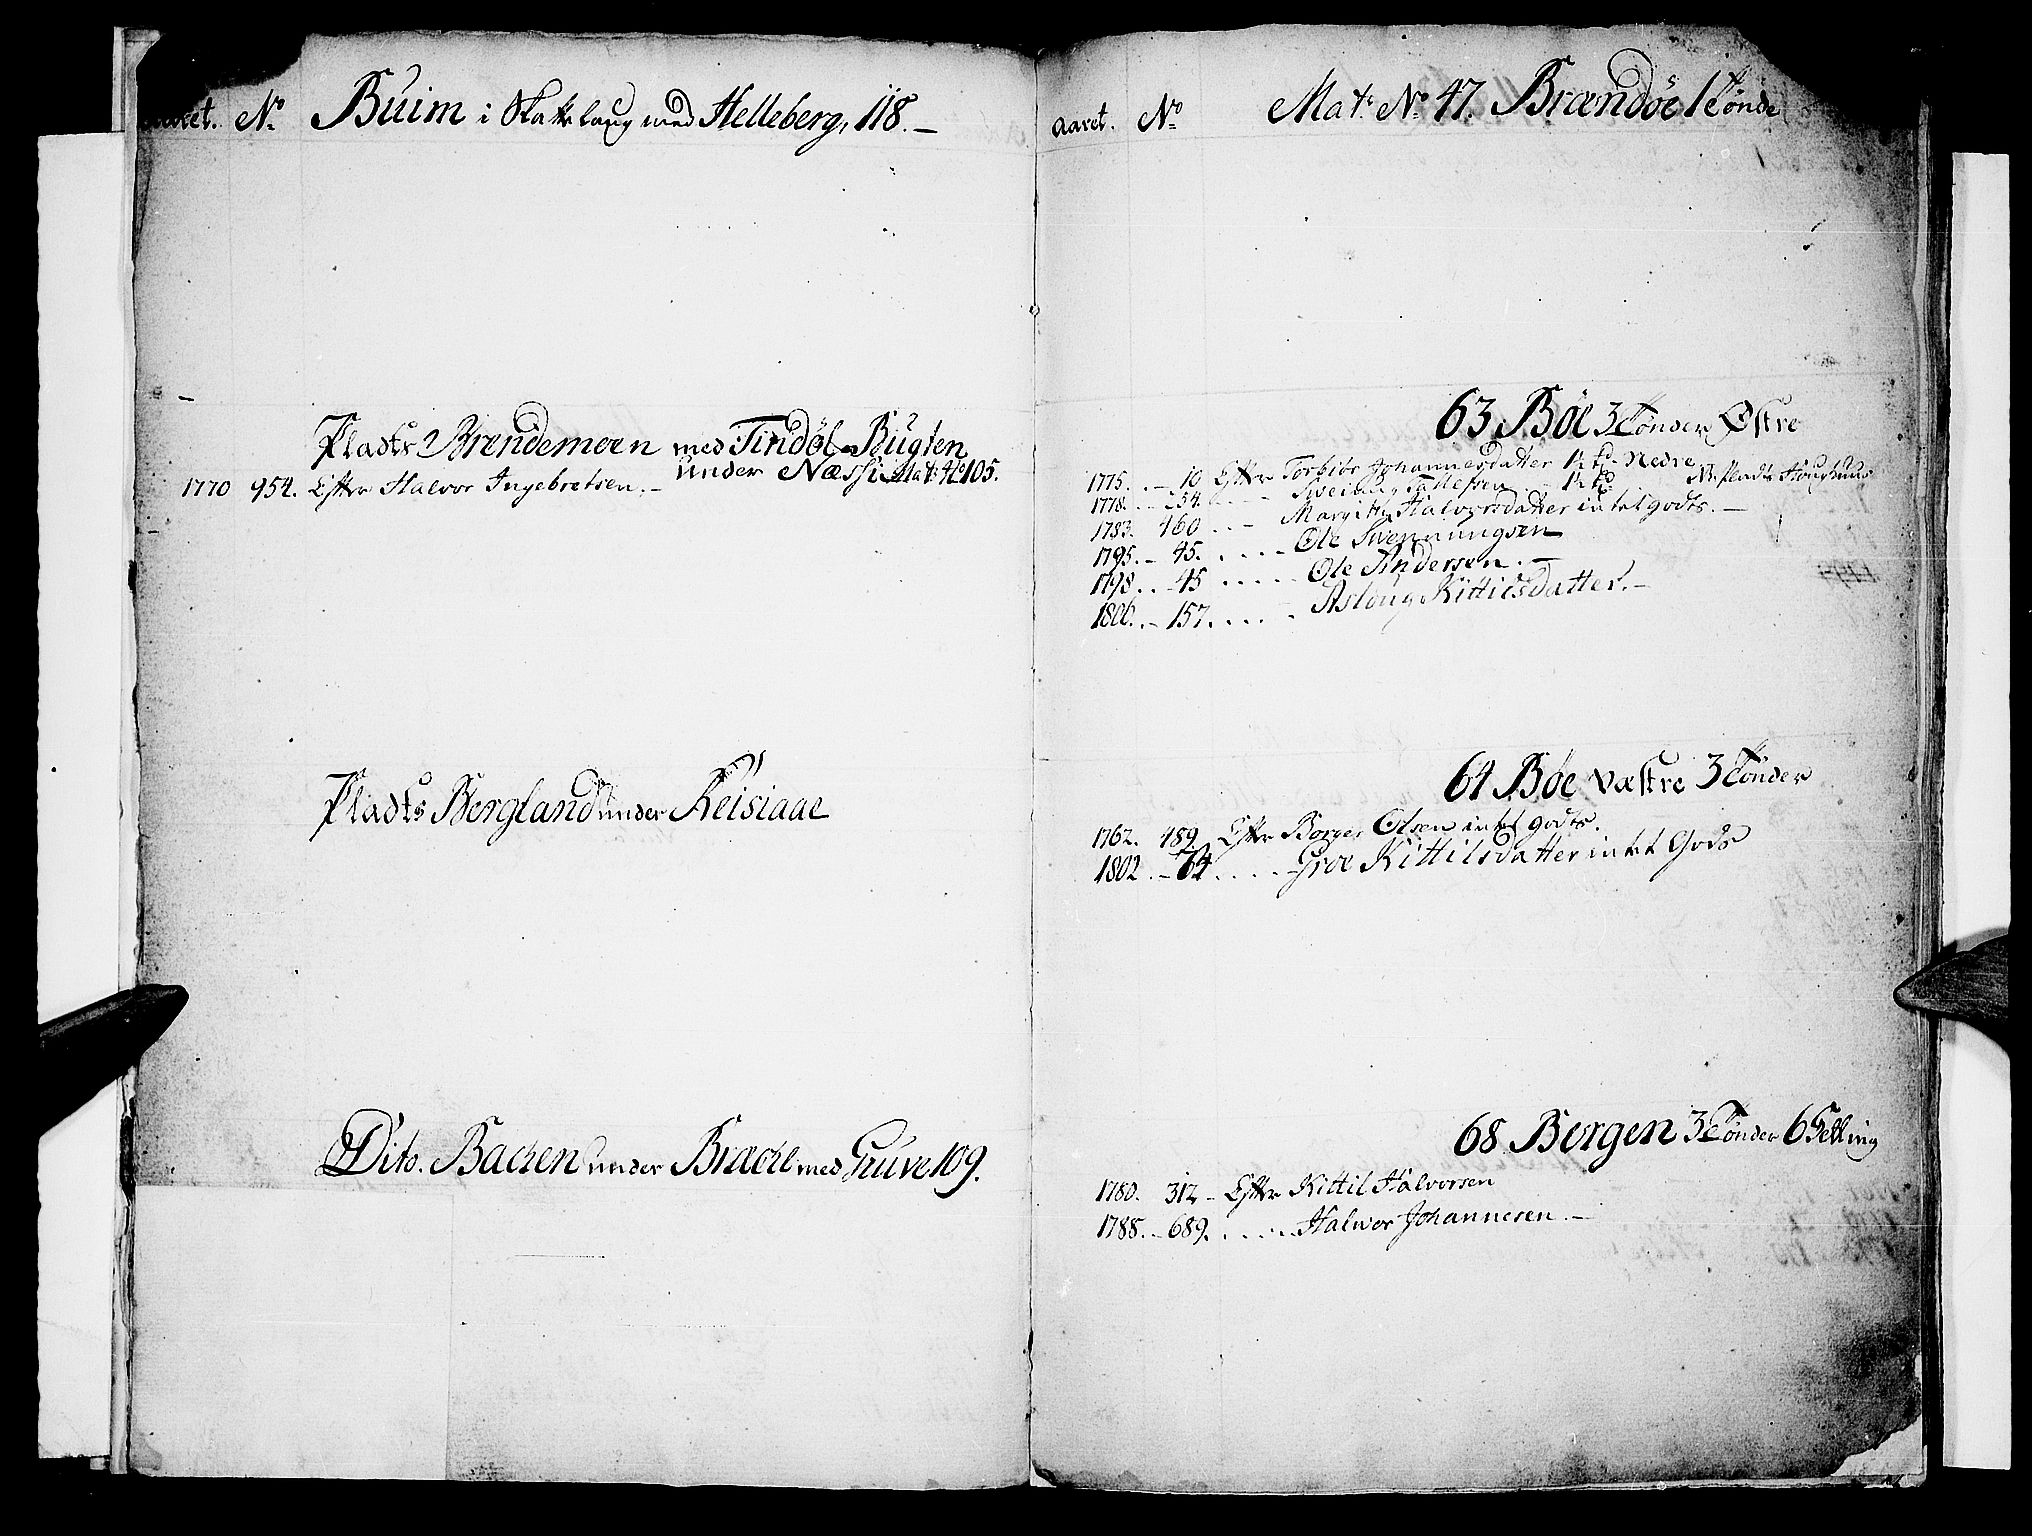 aaret. No Buim i Skattelaug med Helleberg, 118. –
Pladts Brendemoen med Tindøl-Bugten
under Næss Mat: No 105.
1770 954. Efter Halvor Ingebretsen. –
Pladts Bergland under Reisiaae
Dito. Bachen under Brache med Gruve 109.
aaret. No Mat: No 47. Brændøe 1 Tønde
63 Bøe 3 Tønder Østre
1775. – 10 Efter Torbiør Johannesdatter 1½ td. Nedre
1778. – 54. Tallefsen – 1½ td. NB Pladts
1783. 460 – Margith Halvorsdatter intet godts. –
1795. – 45. – Ole Swennungsen
1798. – 45 – Ole Andersen. –
1806. – 157. – Asloug Kittilsdatter. –
64 Bøe væstre 3 Tønder
1762. 489. Efter Borger Olsen intet godts.
1802. – 64 – Groe Kittilsdatter intet Gods
68 Bergen 3 Tønder 6 Setting
1780. 312 – Efter Kittil Halvorsen
1788. – 689. – Halvor Johannesen. –